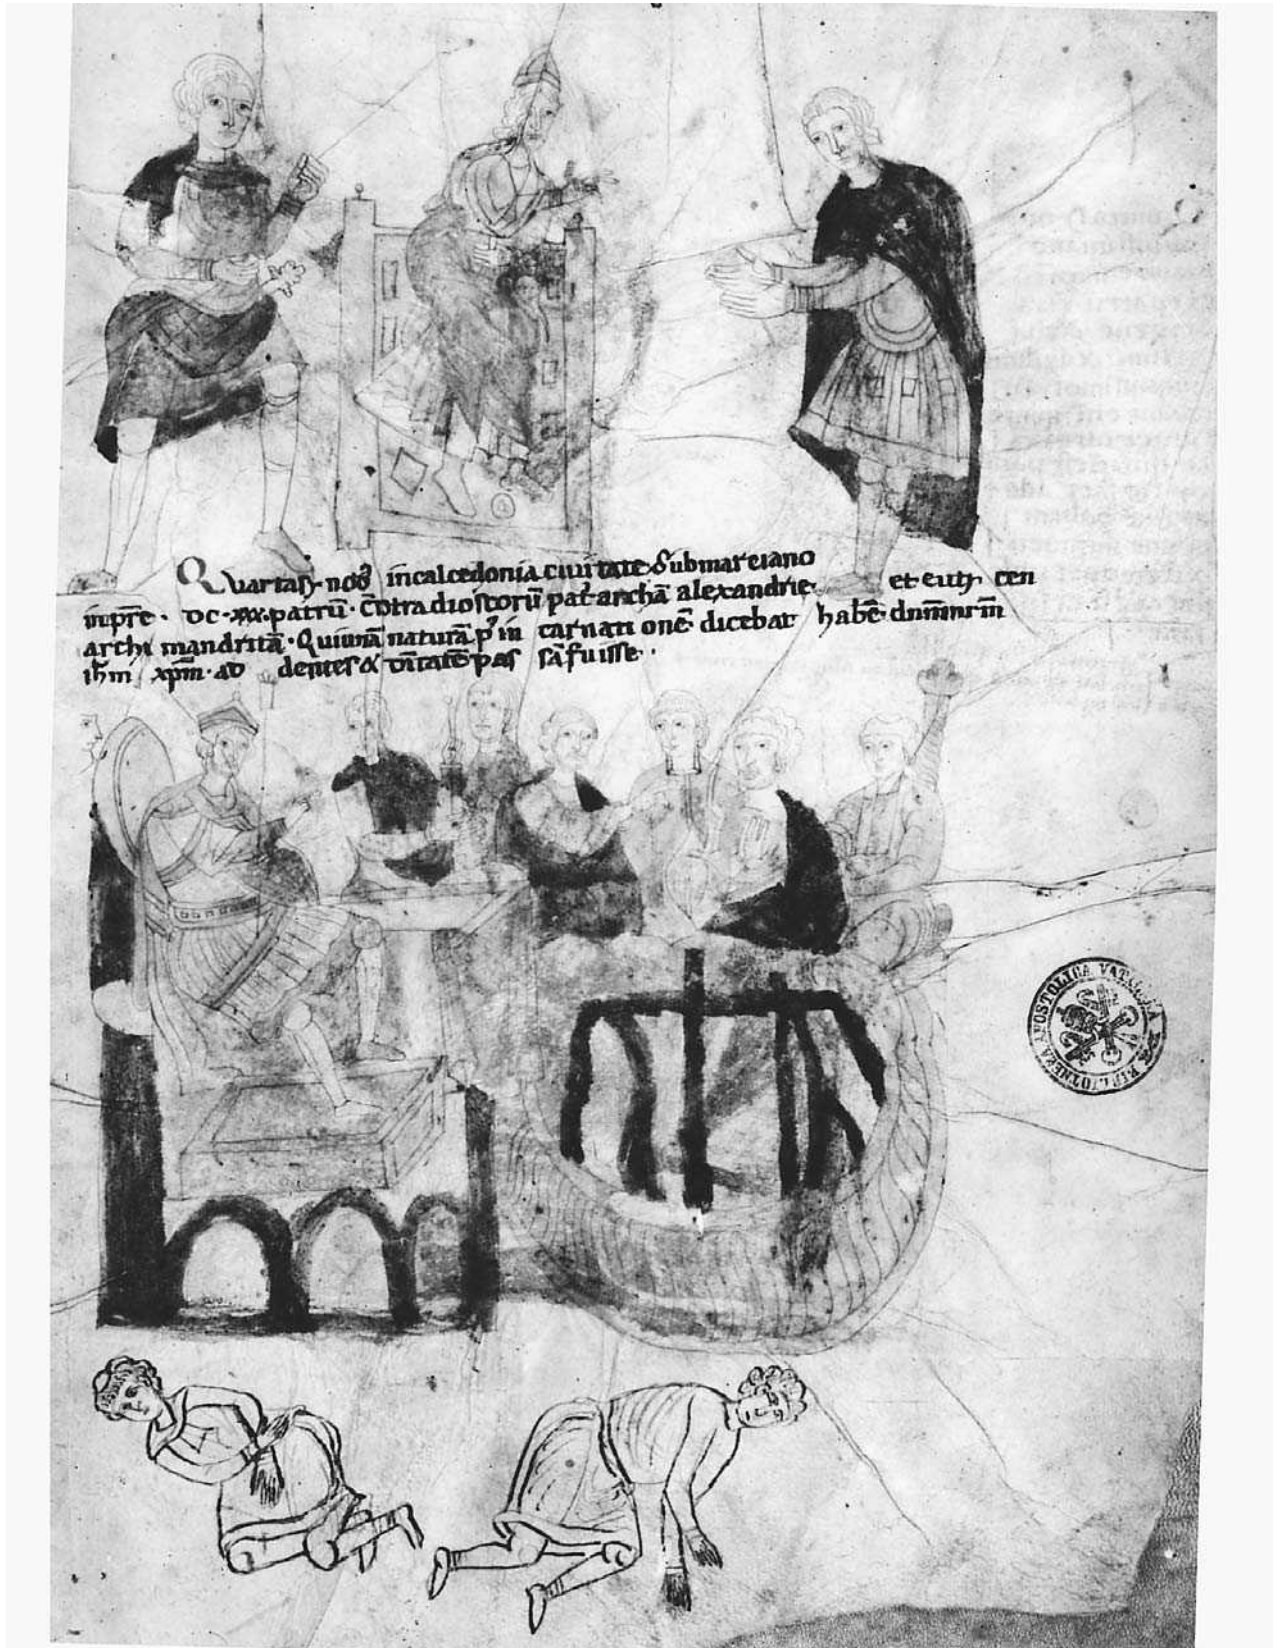 Quarta synod' in calcedonia ciuitate sub marciano
inpre. dc. xxx. patru. Cotra dioscoru patarcha alexandrie. et euty cen
archi mandrita. Qui una natura p' in carnati one dicebat habe dnm nrm
ihm xpm. ad dentes & ditate pas sa fuisse.
BIBLIOTHECA APOSTOLICA VATICANA